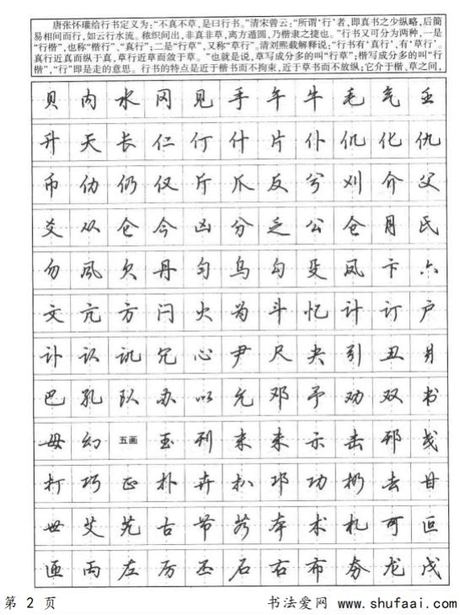 唐张怀瓘给行书定义为:"不真不草,是曰行书。"清宋曾云:"所谓'行'者,即真书之少纵略,后简
易相间而行,如云行水流。秾纤间出,非真非草,离方遁圆,乃楷隶之捷也。"行书又可分为两种,一是
"行楷",也称"楷行"、"真行";二是"行草",又称"草行"。清刘熙载解释说:"行书有'真行',有'草行'。
真行近真而纵于真,草行近草而敛于草。"也就是说,草写成分多的叫"行草";楷写成分多的叫"行
楷","行"即是走的意思。行书的特点是近于楷书而不拘束,近于草书而不放纵;它介于楷、草之间,
贝 内 水 冈 见 手 午 牛 毛 气 壬
升 天 长 仁 仃 什 片 仆 仉 化 仇
币 仂 仍 仅 斤 爪 反 兮 刈 介 父
爻 从 仑 今 凶 分 乏 公 仓 月 氏
勿 风 欠 丹 匀 乌 勾 殳 凤 卞 六
文 亢 方 闩 火 为 斗 忆 计 订 户
讣 认 讥 冗 心 尹 尺 夬 引 丑 爿
巴 孔 队 办 以 允 邓 予 劝 双 书
毋 幻 五画 玉 刊 耒 未 示 击 邗 戋
打 巧 正 扑 卉 扒 邛 功 扔 去 甘
世 艾 艽 古 节 艿 本 术 札 可 叵
匝 丙 左 厉 丕 石 右 布 夯 龙 戊
第 2 页 书法爱网 www.shufaai.com